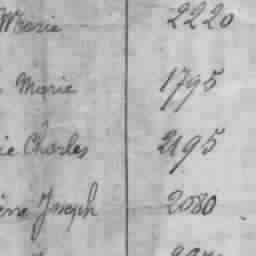 Marie 2220
Marie 1795
ie Charles 2195
Joseph 2080